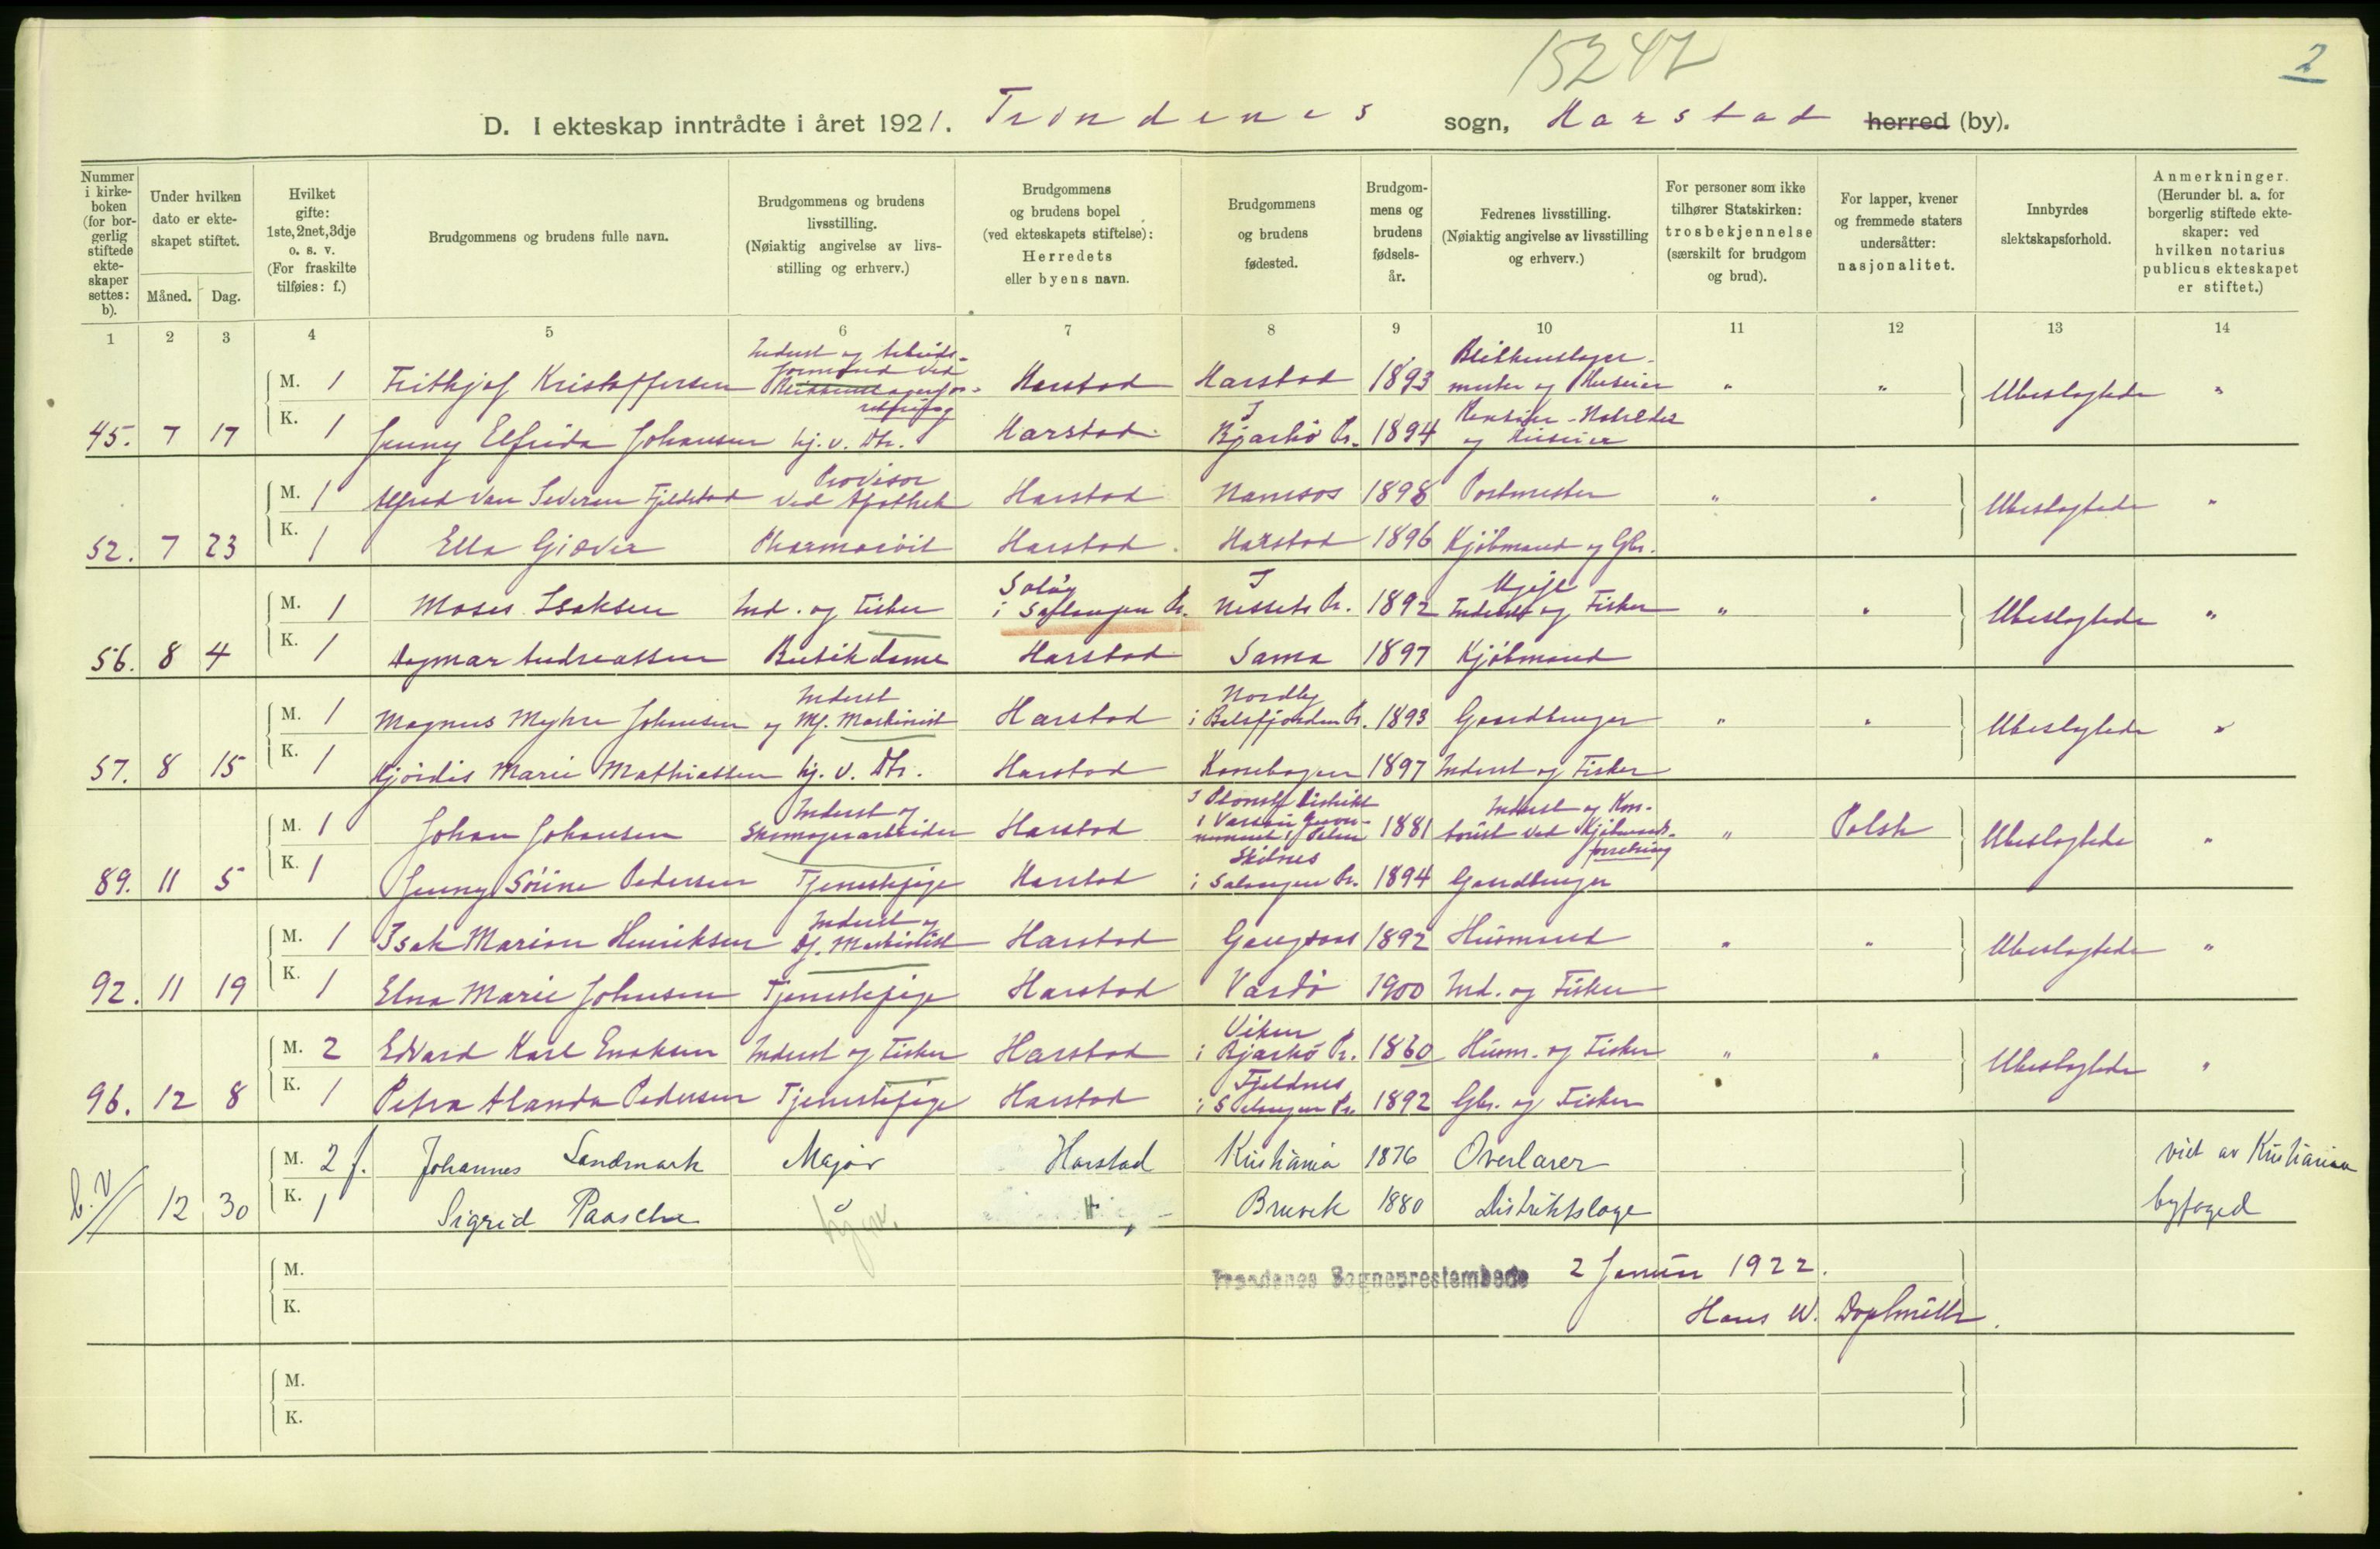 15242
2
D. I ekteskap inntrådte i året 1921. Trondenes sogn, Harstad herred (by).
Nummer i kirke-boken (for bor-gerlig stiftede ekte-skaper settes: b).
Under hvilken dato er ekte-skapet stiftet.
Måned. Dag.
Hvilket gifte: 1ste, 2net, 3dje o. s. v. (For fraskilte tilføies: f.)
Brudgommens og brudens fulle navn.
Brudgommens og brudens livsstilling. (Nøiaktig angivelse av livs-stilling og erhverv.)
Brudgommens og brudens bopel (ved ekteskapets stiftelse): Herredets eller byens navn.
Brudgommens og brudens fødested.
Brudgom-mens og brudens fødsels-år.
Fedrenes livsstilling. (Nøiaktig angivelse av livsstilling og erhverv.)
For personer som ikke tilhører Statskirken: trosbekjennelse (særskilt for brudgom og brud).
For lapper, kvener og fremmede staters undersåtter: nasjonalitet.
Innbyrdes slektskapsforhold.
Anmerkninger. (Herunder bl. a. for borgerlig stiftede ekte-skaper: ved hvilken notarius publicus ekteskapet er stiftet.)
1 2 3 4 5 6 7 8 9 10 11 12 13 14
M. 1 Frithjof Kristoffersen Inderst og Arbeids-formand ved Harstad Harstad 1893 Blikkenslager-mester og Huseier " " Ubeslegtede "
45. 7 17 K. 1 Jenny Elfrida Johansen hj. v. Dtr. Harstad I Bjarkö Pr. 1894 og Huseier
M. 1 Alfred Van Severen Fjeldstad Provisor ved Apothek Harstad Namsos 1898 Postmester " " Ubeslegtede "
52. 7 23 K. 1 Ella Giæver Pharmacöit Harstad Harstad 1896 Kjöbmand og Gbr.
M. 1 Moses Isaksen Ind. og Fisker i Salangen Pr. I Nesseby Pr. 1892 Inderst og Fisker " " Ubeslegtede "
56. 8 4 K. 1 Dagmar Andreassen Butikdame Harstad Sama 1897 Kjöbmand
M. 1 Magnus Myhre Johnsen Inderst og Mf. Maskinist Harstad Nordby i Balsfjorden Pr. 1893 Gaardbruger " " Ubeslegtede "
57. 8 15 K. 1 Hjördis Marie Mathiassen hj. v. Dtr. Harstad Kassebogen 1897 Inderst og Fisker
M. 1 Johan Johansen Inderst og Skomagerarbeider Harstad I Plonsk Distrikt i Varsau Guver-nement i Polen 1881 Inderst og Kon-torist ved Kjöbmands-forretning " Polsk Ubeslegtede "
89. 11 5 K. 1 Jenny Sörine Pedersen Tjenestepige Harstad i Salangen Pr. 1894 Gaardbruger
M. 1 Isak Marion Henriksen Inderst og Df. Maskinist Harstad Gangsaas 1892 Husmand " " Ubeslegtede "
92. 11 19 K. 1 Elna Marie Johnsen Tjenestepige Harstad Vardö 1900 Ind. og Fisker
M. 2 Edvard Karl Enoksen Inderst og Fisker Harstad Viken i Bjarkö Pr. 1860 Husm. og Fisker " " Ubeslegtede "
96. 12 8 K. 1 Petra Alanda Pedersen Tjenestepige Harstad Fjeldnes i Salangen Pr. 1892 Gbr. og Fisker
M. 2 f. Johannes Landmark Major Harstad Kristiania 1876 Overlærer viet av Kristiania
b. V 12 30 K. 1 Sigrid Paasche hjem. " Bruvik 1880 Distriktslæge byfoged
M. Trondenes Sogneprestembede 2 Januar 1922.
K. Hans W.
M.
K.